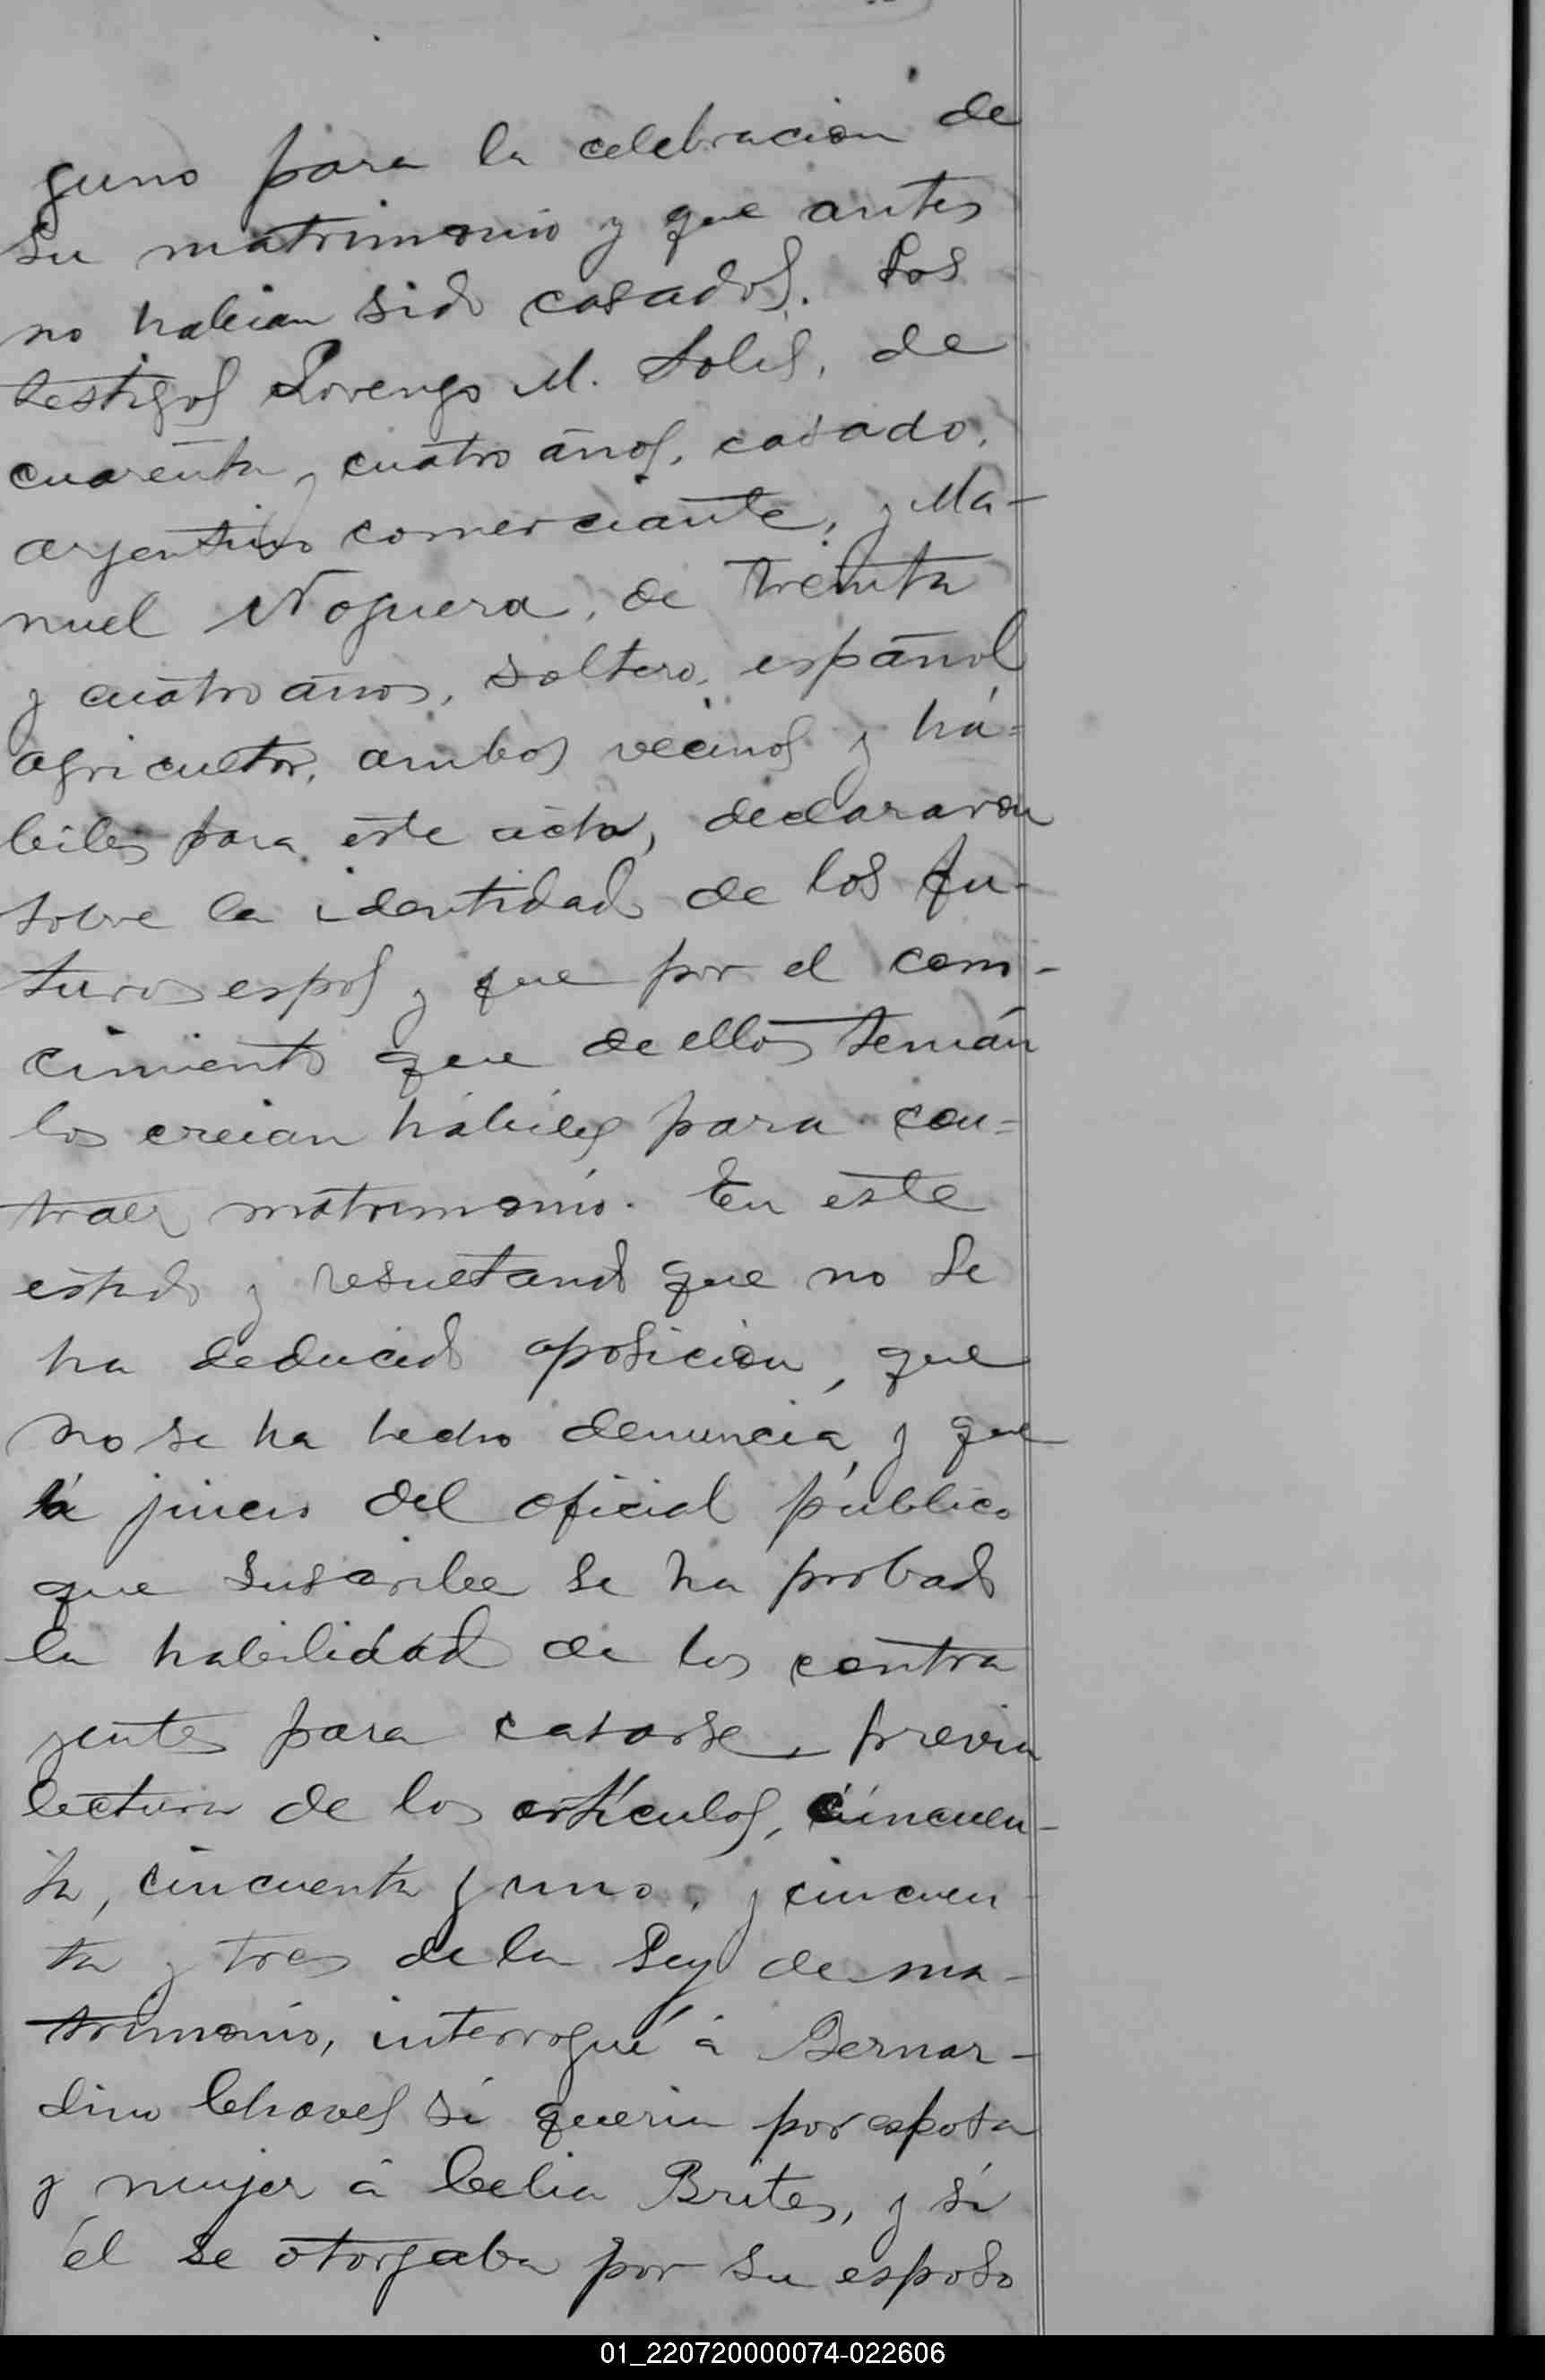 guno para la celebracion de
su matrimonio y que antes
no habian sido casados. Los
testigos Lorenzo M. Solis, de
cuarenta y cuatro años, casado,
argentino comerciante, y Ma-
nuel Noguera, de treinta
y cuatro años, soltero, español
agricultor, ambos vecinos y há=
biles para este acto, declararon
sobre la identidad de los fu-
turos espos y que por el cono-
cimiento que de ellos tenían
los creian hábiles para con=
traer matrimonio. En este
estado y resultando que no se
ha deducido oposicion, que
no se ha hecho denuncia, y que
á juicio del oficial público
que suscribe se ha probado
la habilidad de los contra
yentes para casarse, previa
lectura de los artículos, cincuen-
ta, cincuenta y uno, y cincuen
ta y tres de la Ley de ma-
trimonio, interrogué á Bernar-
dino Chaves si queria por esposa
y mujer á Celia Brites, y si
él se otorgaba por su esposo
01_220720000074-022606